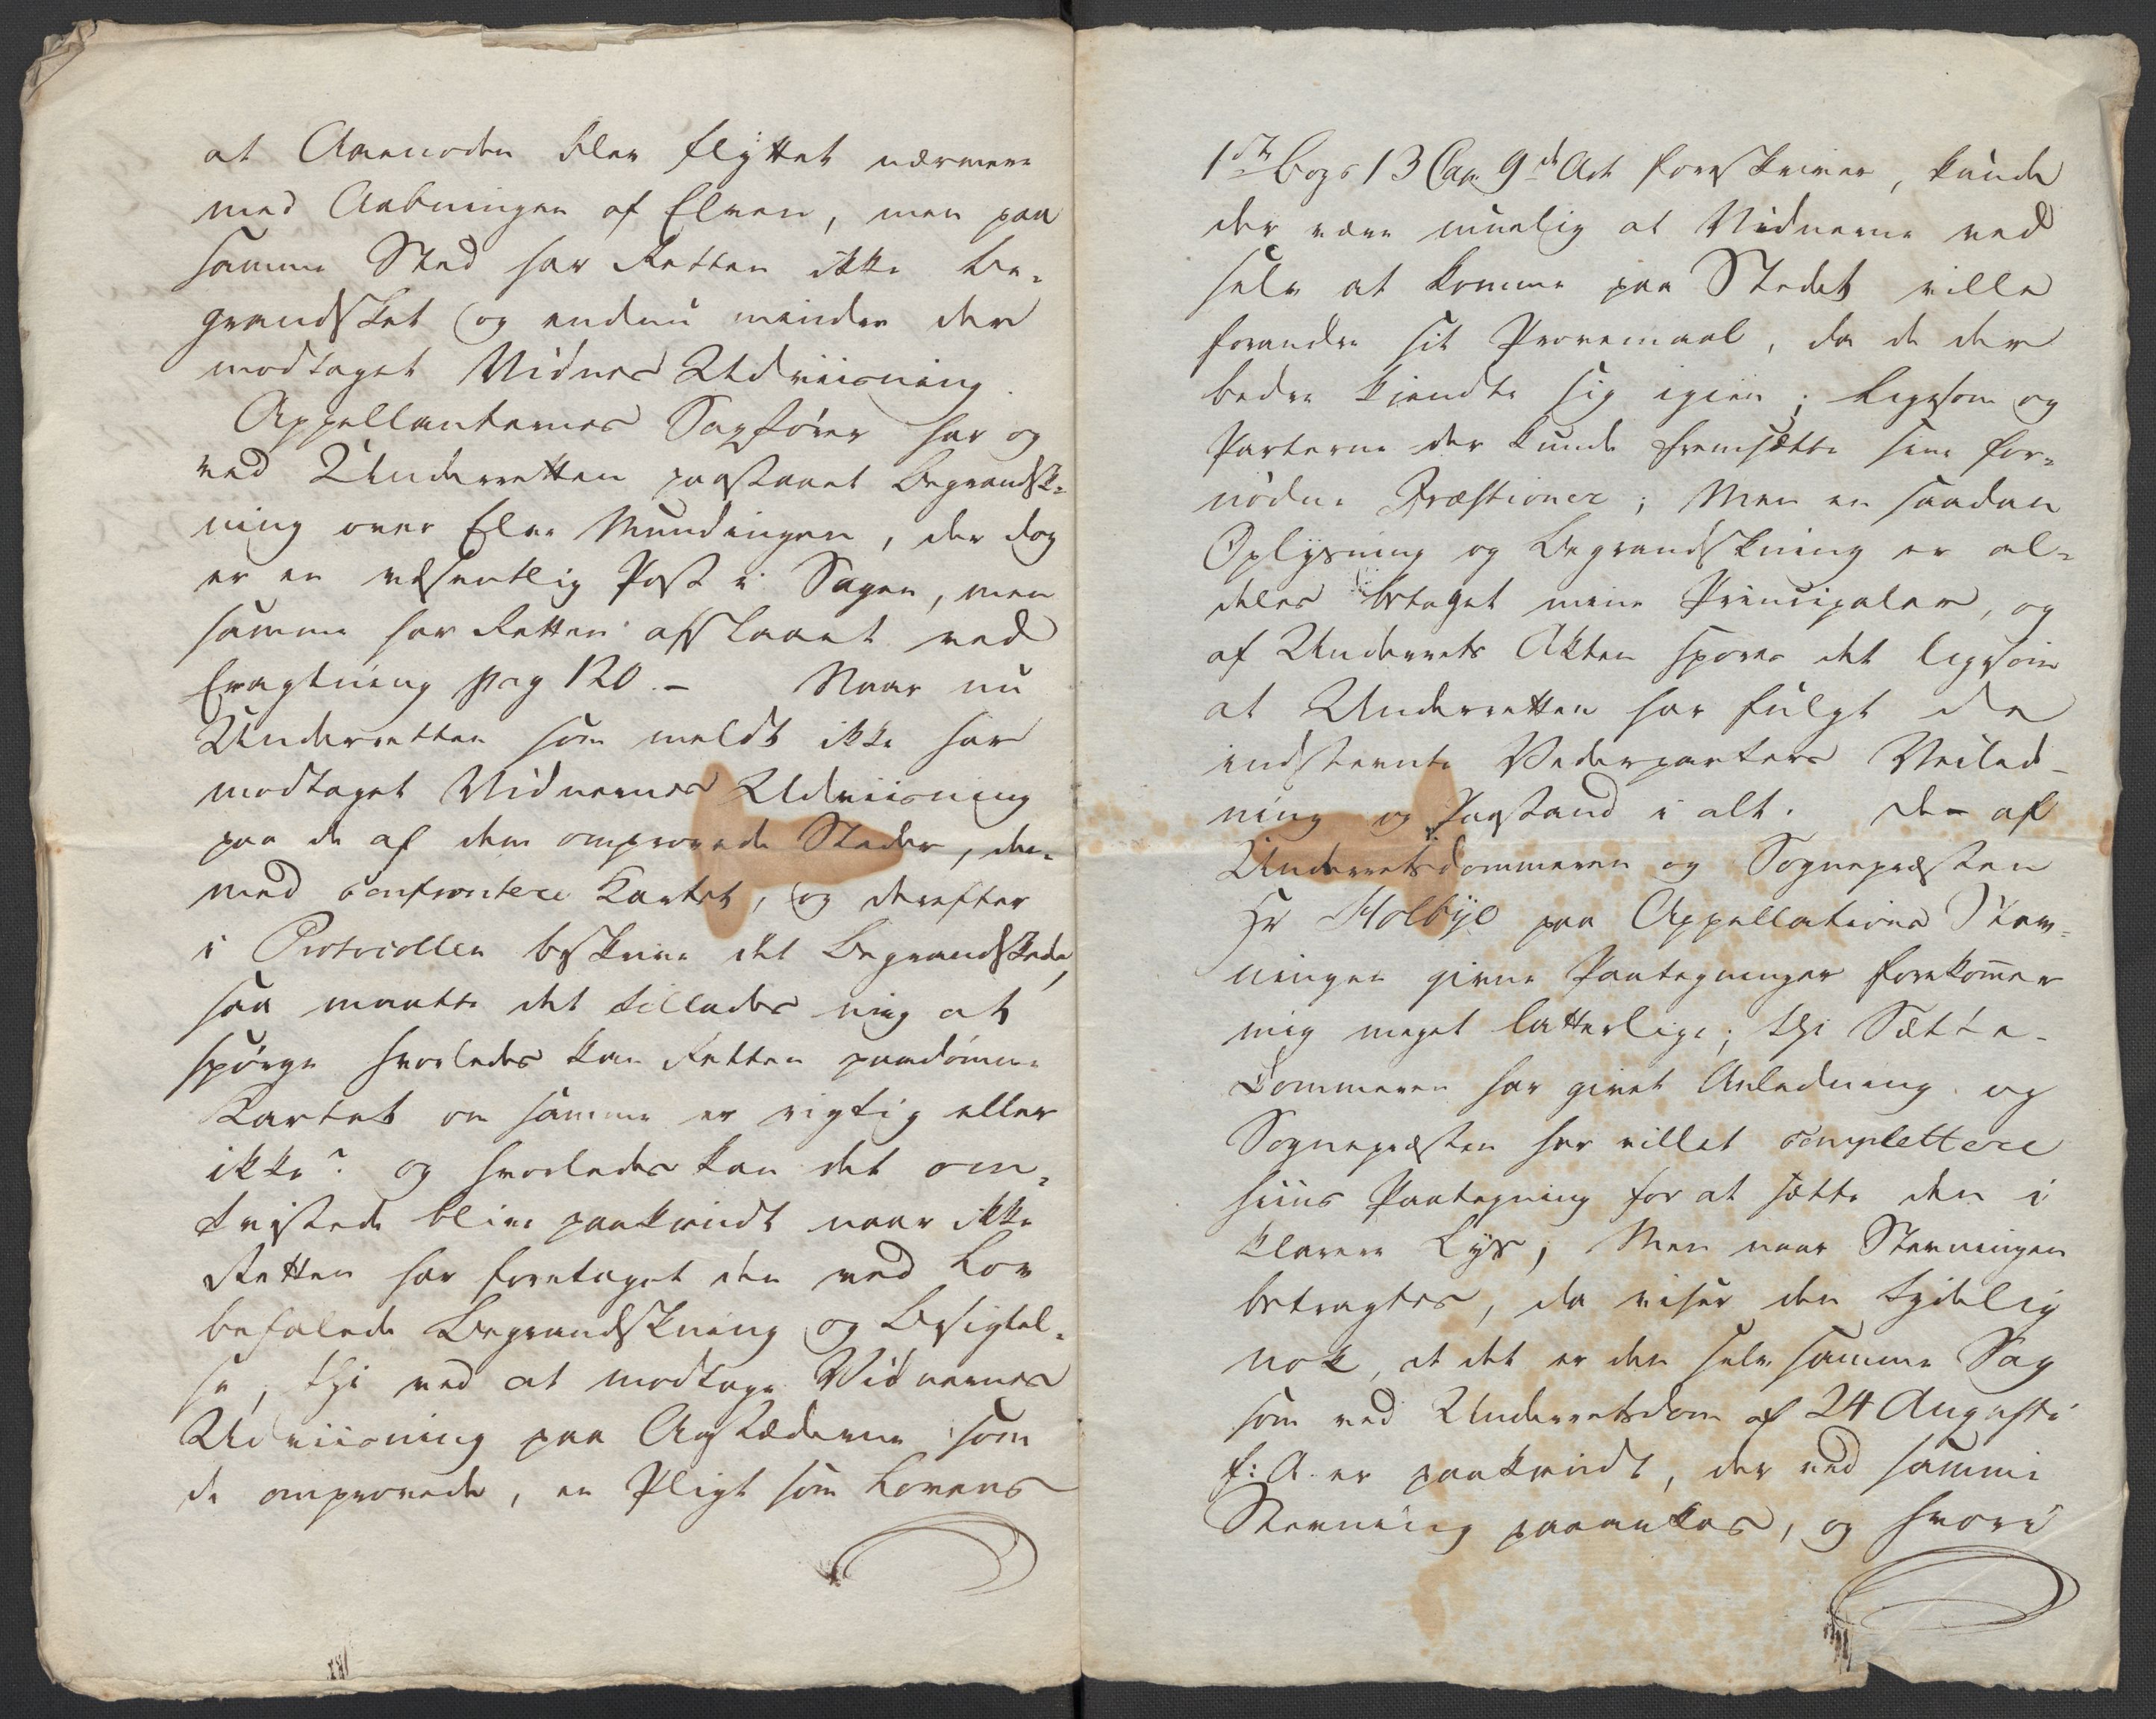 at Aaenoden blev flyttet nærmere
med Aabningen af Elven, men paa
samme Sted har Retten ikke be-
grandsket og endnu minder der
modtaget Vidners Udviisning.
Appellanternes Sagfører har og
ved Underretten paastaaet Begrandsk-
ning over Elve Mundingen, der dog
er en væsentlig Post i Sagen, men
samme har Retten afslaaet ved
Eragtning pag 120. – Naar nu
Underretten som meldt ikke har
modtaget Vidnernes Udviisning
paa de af dem omprovede Steder, der-
med confrontere Kartet, og derefter
i Protocollen beskrive det Begrandskede,
saa maatte det tillades mig at
spørge hvorledes kan Retten paadømme
Kartet om samme er rigtig eller
ikke? og hvorledes kan det om-
tvistede blive paakiendt naar ikke
Retten har foretaget den ved Lov
befalede Begrandskning og Besigtel-
se, thi ved at modtage Vidnernes
Udviisning paa Aastæderne som
de omprovede, en Pligt som Lovens
1ste Bogs 13 Cap. 9de Art foreskriver, kunde
der være muelig at Vidnerne ved
selv at komme paa Stedet ville
forandre sit Provemaal, da de der
bedre kiendte sig igien; ligesom og
Parterne der kunde fremsætte sine for-
nødne Qvæstioner; Men en saadan
Oplysning og Begrandskning er al-
deles betaget mine Principaler, og
af Underrets Akten spores det ligesom
at Underretten har fulgt de
indstevnte Vederparters Veiled-
ning og Paastand i alt. De af
Underretsdommeren og Sognepræsten
Hr Holbye paa Appellations Stev-
ningen givne Paategninger forekommer
mig meget latterlige; thi Sætte-
Dommeren har givet Anledning og
Sognepræsten har villet complettere
hiins Paategning for at sætte den i
klarere Lys; Men naar Stevningen
betragtes, da viser den tydelig
nok, at det er den selv samme Sag
som ved Underretsdom af 24 Augusti
f: A. er paakiendt, der ved samme
Stevning paaankes, og hvori